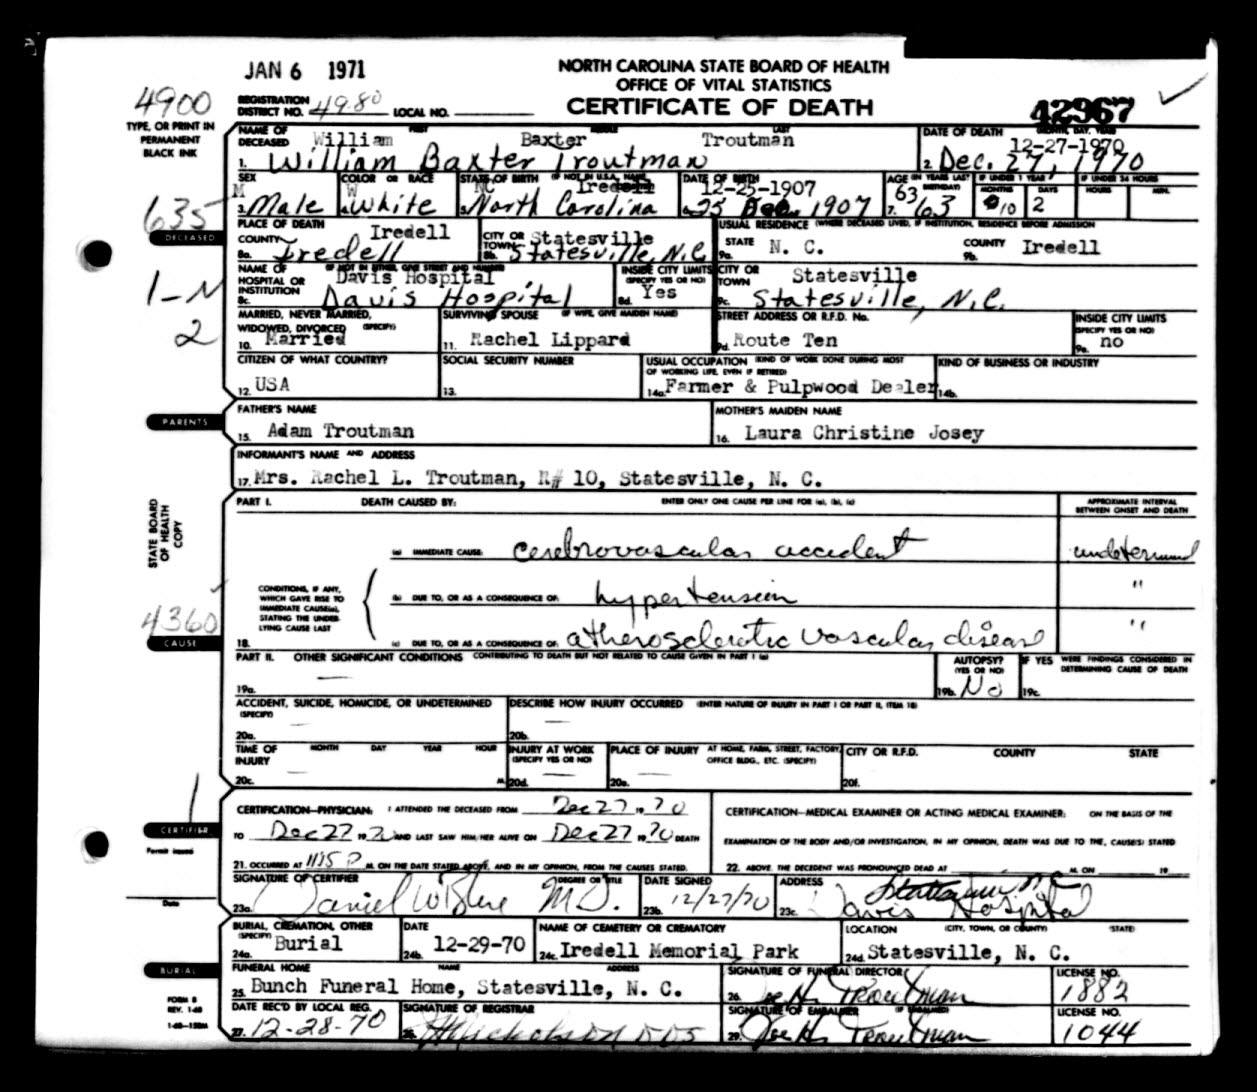 JAN 6 1971
NORTH CAROLINA STATE BOARD OF HEALTH
OFFICE OF VITAL STATISTICS
CERTIFICATE OF DEATH
4900
REGISTRATION DISTRICT NO. 4980 LOCAL NO.
42367
TYPE, OR PRINT IN PERMANENT BLACK INK
NAME OF DECEASED FIRST MIDDLE LAST
William Baxter Troutman
1. William Baxter Troutman
DATE OF DEATH (MONTH, DAY, YEAR)
12-27-1970
2. Dec. 27, 1970
SEX M
3. Male
COLOR OR RACE W
4. White
STATE OF BIRTH (IF NOT IN U.S.A., NAME
NC Iredell
5. North Carolina
DATE OF BIRTH
12-25-1907
6. 25 Dec. 1907
AGE (IN YEARS LAST BIRTHDAY)
63
7. 63
IF UNDER 1 YEAR
MONTHS DAYS
10 2
IF UNDER 24 HOURS
HOURS MIN.
635
DECEASED
PLACE OF DEATH
COUNTY Iredell
8a. Iredell
CITY OR TOWN Statesville
8b. Statesville, N.C.
USUAL RESIDENCE (WHERE DECEASED LIVED, IF INSTITUTION, RESIDENCE BEFORE ADMISSION
STATE N. C.
9a.
COUNTY Iredell
9b.
1-N
NAME OF HOSPITAL OR INSTITUTION (IF NOT IN EITHER, GIVE STREET AND NUMBER
Davis Hospital
8c. Davis Hospital
INSIDE CITY LIMITS (SPECIFY YES OR NO)
8d. Yes
CITY OR TOWN Statesville
9c. Statesville, N.C.
2
MARRIED, NEVER MARRIED, WIDOWED, DIVORCED (SPECIFY)
10. Married
SURVIVING SPOUSE (IF WIFE, GIVE MAIDEN NAME)
11. Rachel Lippard
STREET ADDRESS OR R.F.D. No.
9d. Route Ten
INSIDE CITY LIMITS (SPECIFY YES OR NO)
9e. no
CITIZEN OF WHAT COUNTRY?
12. USA
SOCIAL SECURITY NUMBER
13.
USUAL OCCUPATION (KIND OF WORK DONE DURING MOST OF WORKING LIFE, EVEN IF RETIRED)
14a. Farmer & Pulpwood Dealer
KIND OF BUSINESS OR INDUSTRY
14b.
PARENTS
FATHER'S NAME
15. Adam Troutman
MOTHER'S MAIDEN NAME
16. Laura Christine Josey
INFORMANT'S NAME AND ADDRESS
17. Mrs. Rachel L. Troutman, R# 10, Statesville, N. C.
STATE BOARD OF HEALTH COPY
PART I. DEATH CAUSED BY: ENTER ONLY ONE CAUSE PER LINE FOR (a), (b), (c)
APPROXIMATE INTERVAL BETWEEN ONSET AND DEATH
(a) IMMEDIATE CAUSE: cerebrovascular accident undetermined
CONDITIONS, IF ANY, WHICH GAVE RISE TO IMMEDIATE CAUSE(a), STATING THE UNDERLYING CAUSE LAST
(b) DUE TO, OR AS A CONSEQUENCE OF: hypertension "
4360
CAUSE
18. (c) DUE TO, OR AS A CONSEQUENCE OF: atherosclerotic vascular disease "
PART II. OTHER SIGNIFICANT CONDITIONS CONTRIBUTING TO DEATH BUT NOT RELATED TO CAUSE GIVEN IN PART I (a)
19a. —
AUTOPSY? (YES OR NO)
19b. No
IF YES WERE FINDINGS CONSIDERED IN DETERMINING CAUSE OF DEATH
19c.
ACCIDENT, SUICIDE, HOMICIDE, OR UNDETERMINED (SPECIFY)
20a. —
DESCRIBE HOW INJURY OCCURRED (ENTER NATURE OF INJURY IN PART I OR PART II, ITEM 18)
20b. —
TIME OF INJURY MONTH DAY YEAR HOUR
20c. — M.
INJURY AT WORK (SPECIFY YES OR NO)
20d. —
PLACE OF INJURY AT HOME, FARM, STREET, FACTORY, OFFICE BLDG., ETC. (SPECIFY)
20e. —
CITY OR R.F.D. COUNTY STATE
20f.
1
CERTIFIER
Permit issued
Date
CERTIFICATION—PHYSICIAN: I ATTENDED THE DECEASED FROM Dec 27 1970
TO Dec 27 1970 AND LAST SAW HIM/HER ALIVE ON Dec 27 1970 DEATH
21. OCCURRED AT 1115 P M. ON THE DATE STATED ABOVE, AND IN MY OPINION, FROM THE CAUSES STATED.
CERTIFICATION—MEDICAL EXAMINER OR ACTING MEDICAL EXAMINER: ON THE BASIS OF THE
EXAMINATION OF THE BODY AND/OR INVESTIGATION, IN MY OPINION, DEATH WAS DUE TO THE, CAUSE(S) STATED
22. ABOVE. THE DECEDENT WAS PRONOUNCED DEAD AT M. ON 19
SIGNATURE OF CERTIFIER DEGREE OR TITLE
23a. Daniel M.D.
DATE SIGNED
23b. 12/27/70
ADDRESS
23c. Davis Hospital
BURIAL, CREMATION, OTHER (SPECIFY)
24a. Burial
DATE
24b. 12-29-70
NAME OF CEMETERY OR CREMATORY
24c. Iredell Memorial Park
LOCATION (CITY, TOWN, OR COUNTY) (STATE)
24d. Statesville, N. C.
BURIAL
FUNERAL HOME NAME ADDRESS
25. Bunch Funeral Home, Statesville, N. C.
SIGNATURE OF FUNERAL DIRECTOR
26. Joe H. Troutman
LICENSE NO.
1882
FORM 8
REV. 1-68
DATE REC'D BY LOCAL REG.
27. 12-28-70
SIGNATURE OF REGISTRAR
28. Nicholson DDS
SIGNATURE OF EMBALMER (IF EMBALMED)
29. Joe H. Troutman
LICENSE NO.
1044